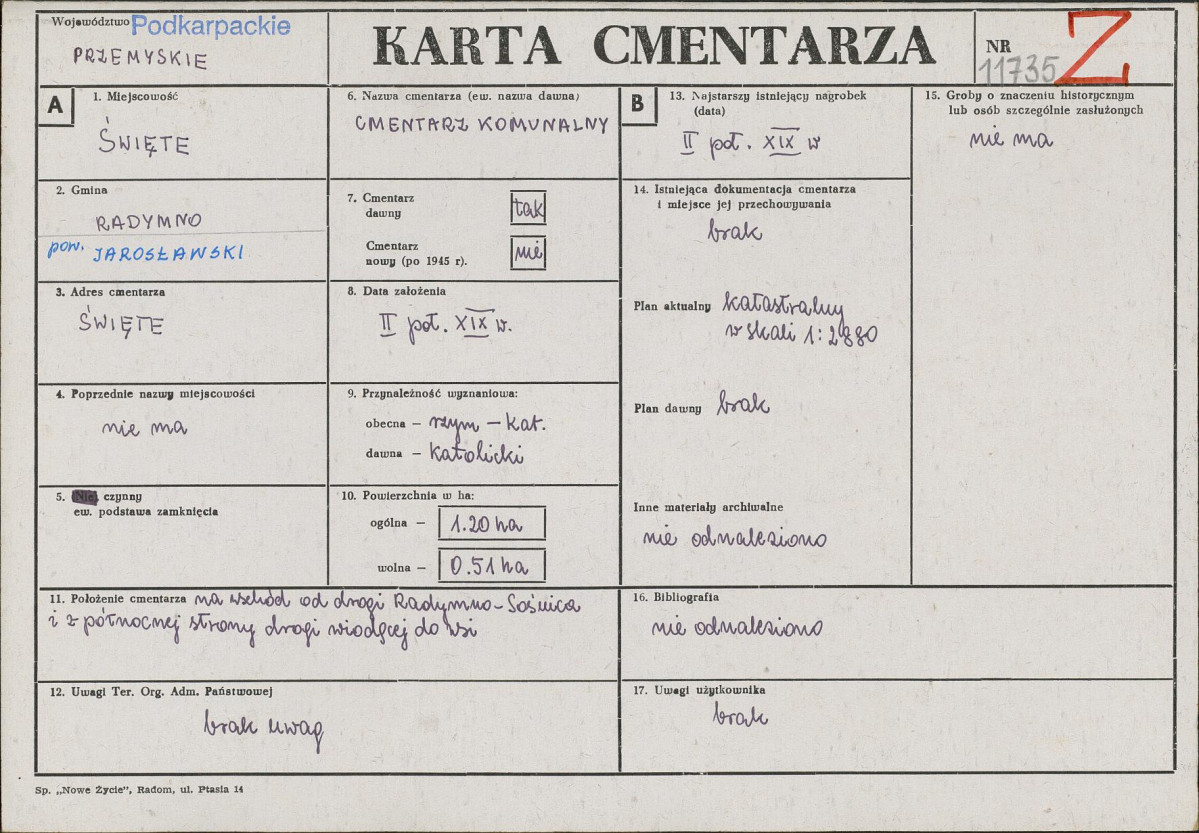 Województwo Podkarpackie
PRZEMYSKIE
KARTA CMENTARZA
NR
11735
Z
A
1. Miejscowość
ŚWIĘTE
2. Gmina
RADYMNO
pow. JAROSŁAWSKI
3. Adres cmentarza
ŚWIĘTE
4. Poprzednie nazwy miejscowości
nie ma
5. Nie czynny
ew. podstawa zamknięcia
6. Nazwa cmentarza (ew. nazwa dawna)
CMENTARZ KOMUNALNY
7. Cmentarz
dawny
tak
Cmentarz
nowy (po 1945 r).
nie
8. Data założenia
II poł. XIX w.
9. Przynależność wyznaniowa:
obecna — rzym - kat.
dawna — katolicki
10. Powierzchnia w ha:
ogólna — 1.20 ha
wolna — 0.51 ha
11. Położenie cmentarza na wschód od drogi Radymno-Sośnica
i z północnej strony drogi wiodącej do wsi
12. Uwagi Ter. Org. Adm. Państwowej
brak uwag
B
13. Najstarszy istniejący nagrobek
(data)
II poł. XIX w
14. Istniejąca dokumentacja cmentarza
i miejsce jej przechowywania
brak
Plan aktualny katastralny
w skali 1:2880
Plan dawny brak
Inne materiały archiwalne
nie odnaleziono
15. Groby o znaczeniu historycznym
lub osób szczególnie zasłużonych
nie ma
16. Bibliografia
nie odnaleziono
17. Uwagi użytkownika
brak
Sp. „Nowe Życie", Radom, ul. Ptasia 14